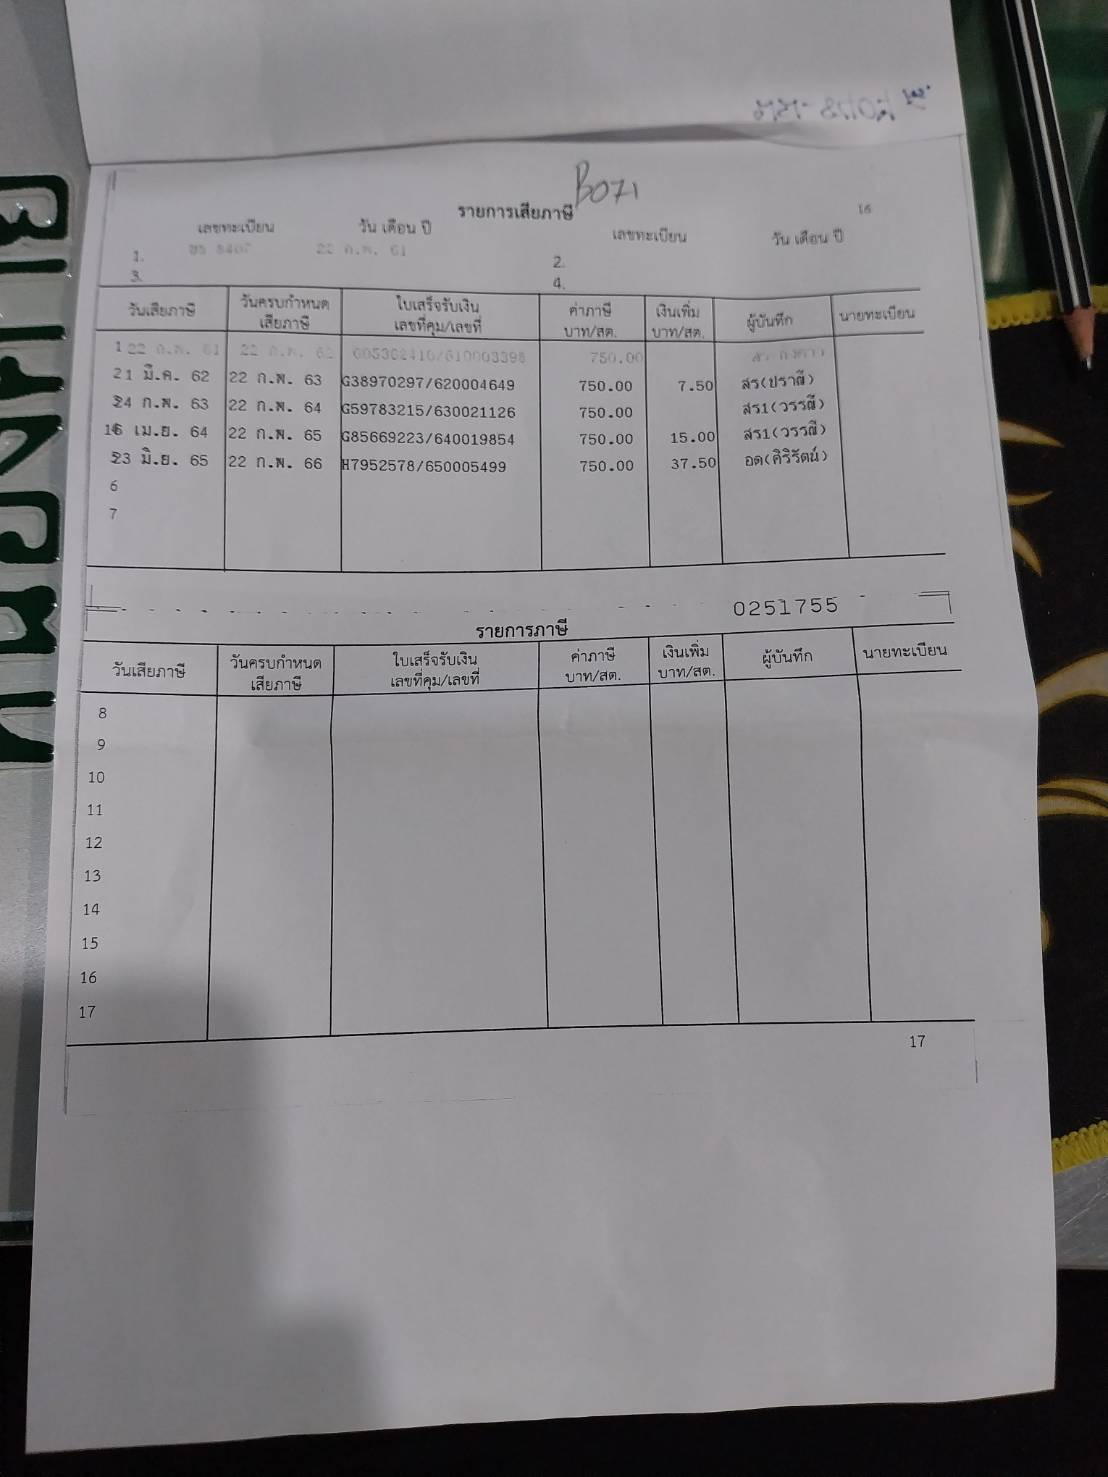 B071
รายการเสียภาษี
16
เลขทะเบียน วัน เดือน ปี เลขทะเบียน วัน เดือน ปี
1. 8407 22 ก.พ. 61 2.
3. 4.
วันเสียภาษี วันครบกำหนดเสียภาษี ใบเสร็จรับเงิน เลขที่คุม/เลขที่ ค่าภาษี บาท/สต. เงินเพิ่ม บาท/สต. ผู้บันทึก นายทะเบียน
1 22 ก.พ. 61 22 ก.พ. 62 750.00
21 มี.ค. 62 22 ก.พ. 63 G38970297/620004649 750.00 7.50 สร(ปราณี)
24 ก.พ. 63 22 ก.พ. 64 G59783215/630021126 750.00 สร1(วรรณี)
16 เม.ย. 64 22 ก.พ. 65 G85669223/640019854 750.00 15.00 สร1(วรรณี)
23 มิ.ย. 65 22 ก.พ. 66 H7952578/650005499 750.00 37.50 อด(ศิริรัตน์)
6
7
0251755
รายการภาษี
วันเสียภาษี วันครบกำหนดเสียภาษี ใบเสร็จรับเงิน เลขที่คุม/เลขที่ ค่าภาษี บาท/สต. เงินเพิ่ม บาท/สต. ผู้บันทึก นายทะเบียน
8
9
10
11
12
13
14
15
16
17
17